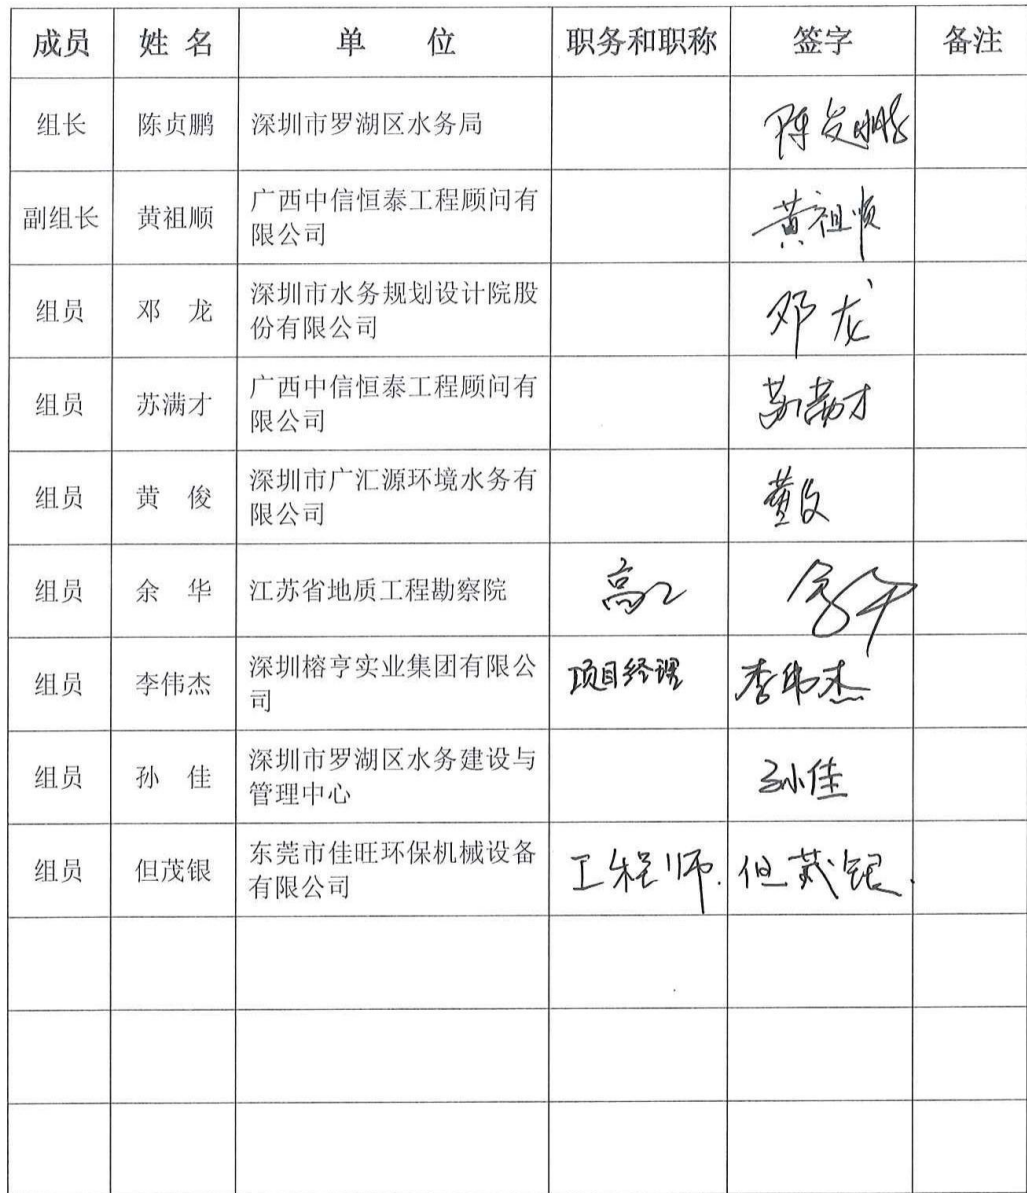 成员 姓 名 单 位 职务和职称 签字 备注
组长 陈贞鹏 深圳市罗湖区水务局 陈贞鹏
副组长 黄祖顺 广西中信恒泰工程顾问有
限公司 黄祖顺
组员 邓 龙 深圳市水务规划设计院股
份有限公司 邓龙
组员 苏满才 广西中信恒泰工程顾问有
限公司 苏满才
组员 黄 俊 深圳市广汇源环境水务有
限公司 黄俊
组员 余 华 江苏省地质工程勘察院 高工 余华
组员 李伟杰 深圳榕亨实业集团有限公
司 项目经理 李伟杰
组员 孙 佳 深圳市罗湖区水务建设与
管理中心 孙佳
组员 但茂银 东莞市佳旺环保机械设备
有限公司 工程师. 但茂银.